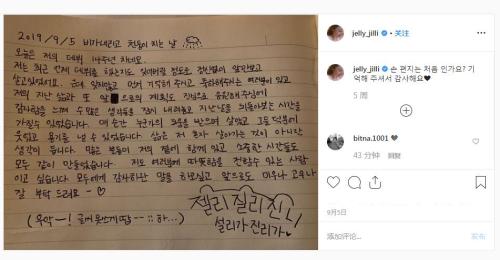 2019/9/5 비가내리고 천둥이 치는 날
오늘은 저의 데뷔 14주년 차네요.
저는 최근 언제 데뷔를 했는지도 잊어버릴 정도로 정신없이 앞만보고
살고있었어요. 근데 잊지않고 먼저 기억해 주시고 축하해주시는 여러분이 있고
저의 지난 삶과 또 앞으로의 계획도 진심으로 응원해주심에
감사함을 느껴 수 많은 생각들을 잠시 내려놓고 지난날을 되돌아보는 시간을
가질수 있었습니다. 매 순간 누군가의 도움을 받으며 살았고 그들 덕분에
웃었고 용기를 낼 수 있었습니다. 삶은 저 혼자 살아가는 것이 아니란
생각이 듭니다. 많은 분들이 저의 곁에 함께 있고 소중한 시간들도
모두 같이 만들었습니다. 저도 여러분께 따뜻함을 전할수 있는 사람
이고 싶습니다 모두에게 감사하단 말을 하고싶고 앞으로도 미우나 고우나
잘 부탁 드려요 - ♡
젤리질리진니
설리가진리가
jelly_jilli • 关注
jelly_jilli 손 편지는 처음 인가요? 기억해 주셔서 감사해요♥
5 周
bitna.1001 🖤
43 分钟 回复
9月5日
添加评论...
发布